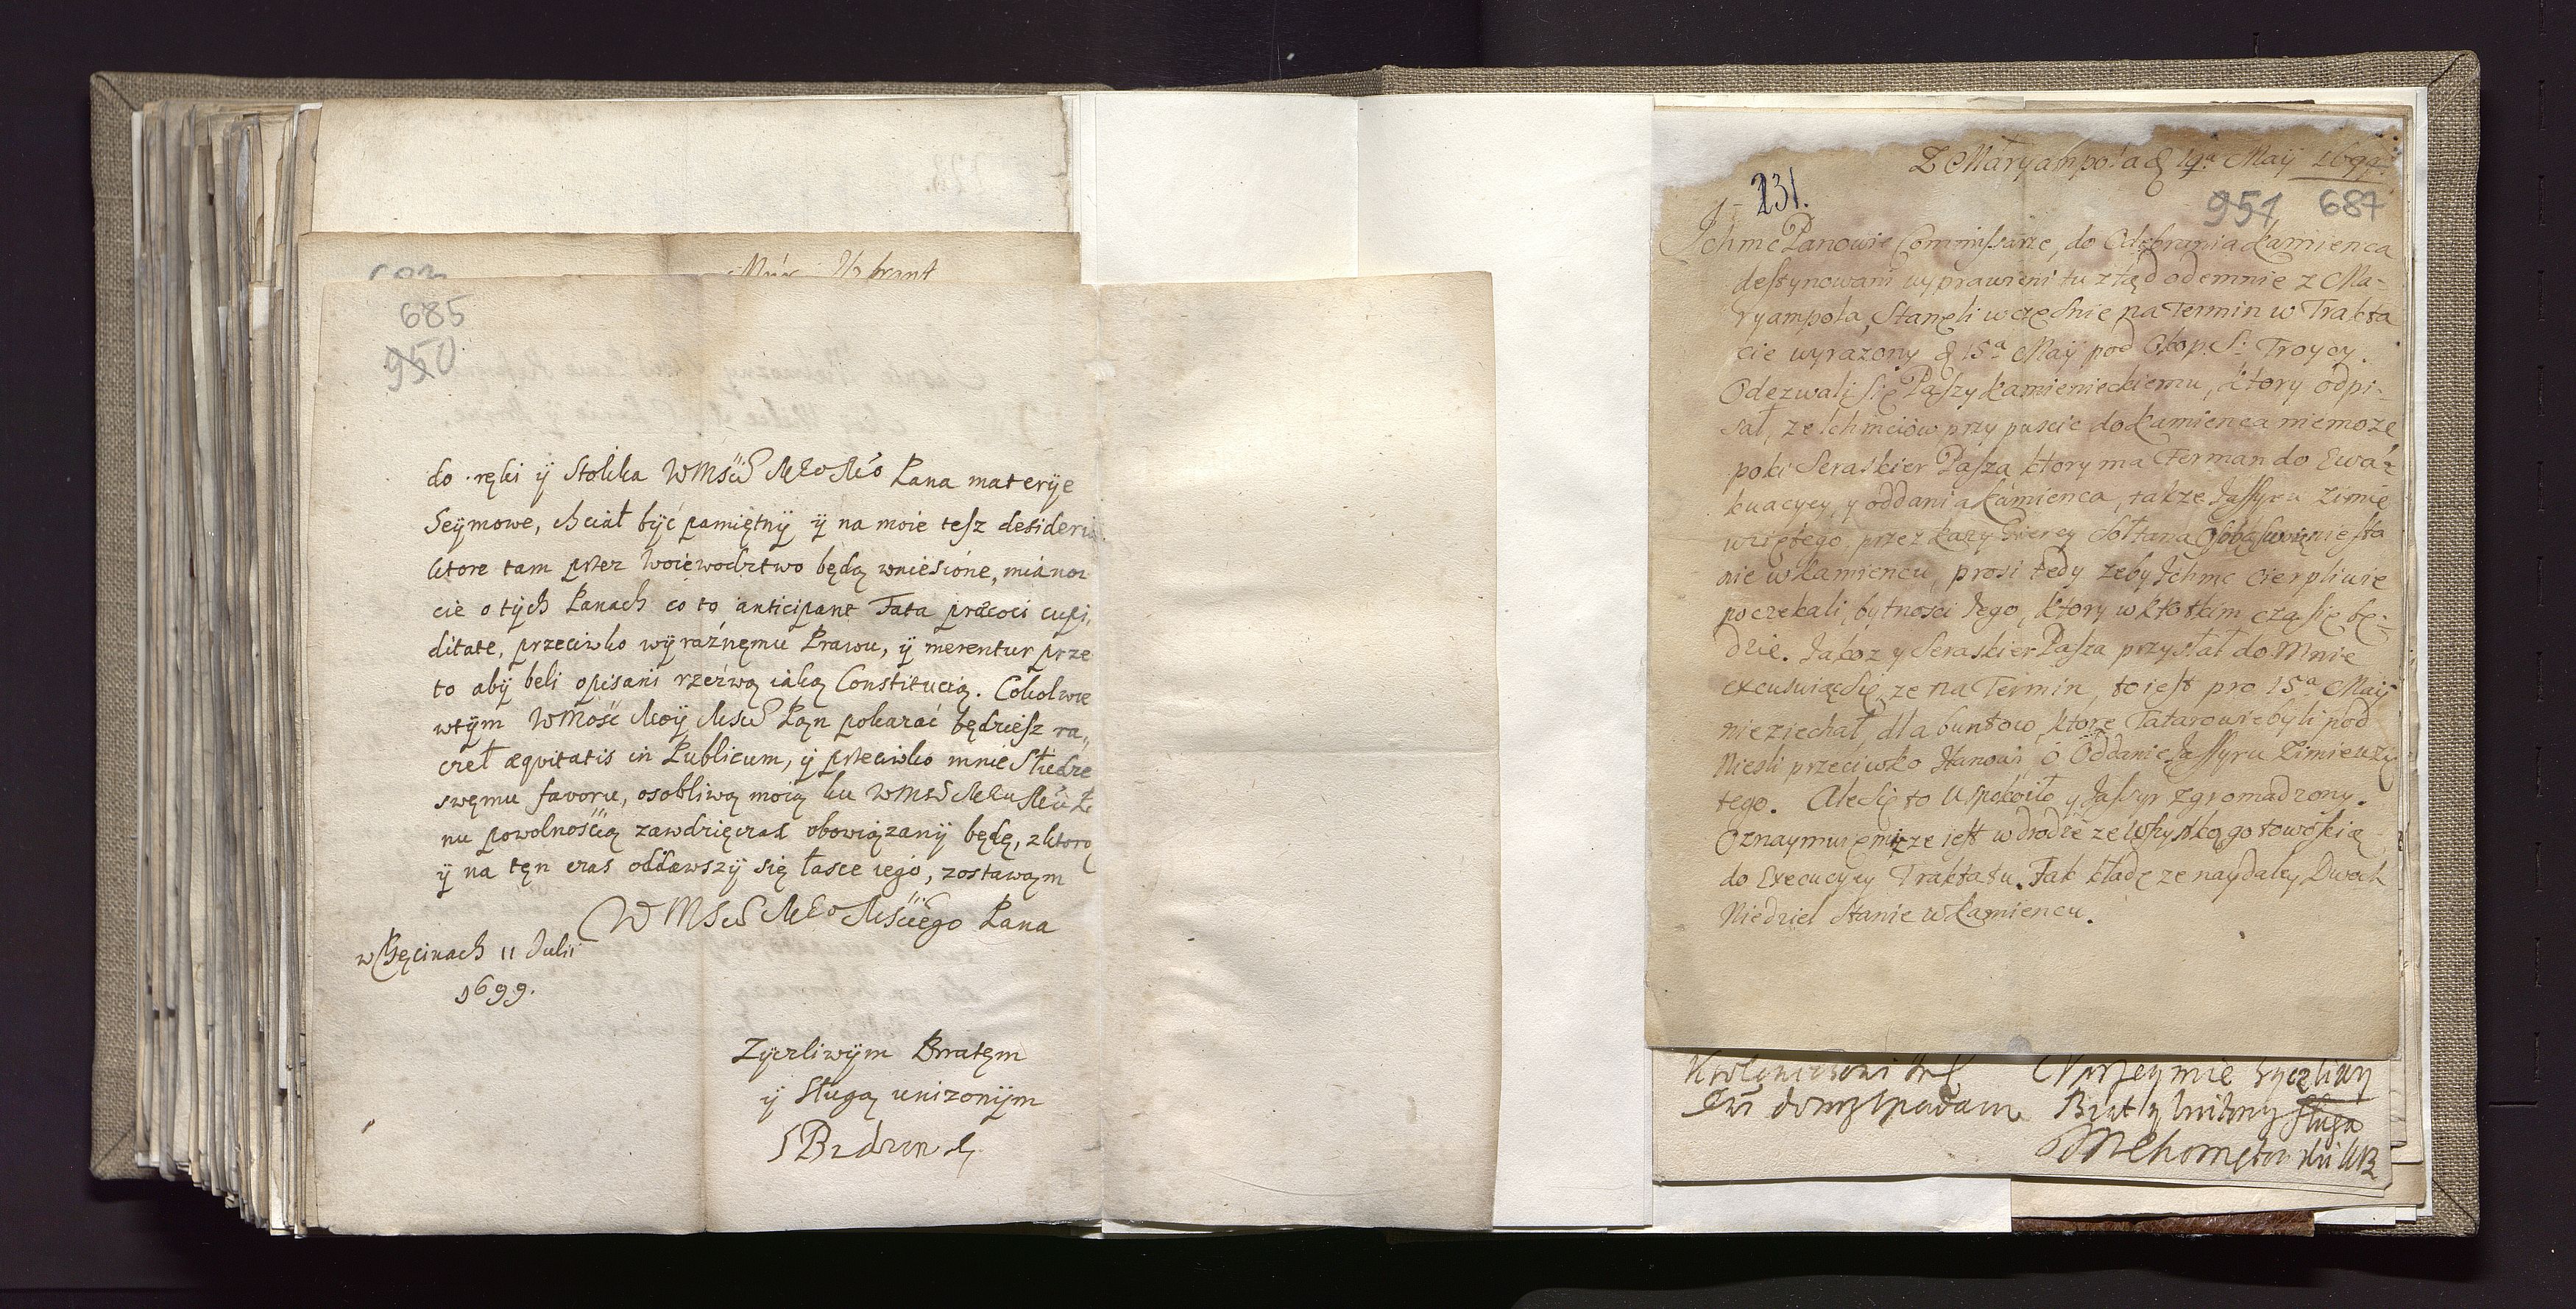 685
950
do ręki ÿ Stolika WMści Mego Mści Pana materÿe
Seÿmowe, chciał bÿć pamiętnÿ ÿ na moie tesz desideria
ktore tam przez woiewodztwo będą wniesione, mianowi
cie o tÿch Panach co to anticipant Fata praecoci cupi,
ditate, przeciwko wÿraźnęmu Prawu, ÿ merentur prze
to abÿ beli opisani rzeźwą iaką Constitucią. Cokolwie
wtÿm WMość Moÿ Mści Pan pokazać będziesz ra,,
czeł aequitatis in Publicum, ÿ przeciwko mnie Słudze
swęmu favoru, osobliwą moią ku WMści Memu Mści Pa
nu powolnością zawdzięczać obowiązanÿ będę, z ktorą
ÿ na tęn czas oddawszÿ się łasce iego, zostawąm
WMści Mego Mściego Pana
w Chęcinach 11 Julii
1699.
Zÿczliwÿm Bratęm
ÿ Sługą unizonÿm
Z Maryampola d. 19a Maÿ 1699
231.
951 687
Ichmc Panowie Commissarze, do Odebrania Kamienca
destynowani wyprawieni tu ztąd odemnie z Ma-
ryampola, Stanęli wczesnie na Termin w Trakta
cie wyrazony d 15a Maÿ pod Okop. S. Troycy.
Odezwali się Paszy Kamienieckiemu, ktory odpi-
sał, ze Ichmciow przypuscic do Kamienca niemoze
poki Seraskier Pasza ktory ma Ferman do Ewa-
kuacyey, y oddania Kamienca, takze Jassyru Zimie
wziętego przez Kazy Gierey Sołtana Osobą swoią nie sta
nie w Kamiencu, prosi tedy zeby Ichmc cierpliwie
poczekali bytnosci Iego, ktory w krotkim czasie bę-
dzie. Jakoz y Seraskier Pasza przysłał do Mnie
excusuiąc się, ze na Termin, to iest pro 15a Maÿ
nieziechał, dla buntow, ktore Tatarowie byli pod
niesli przeciwko Hanowi o Oddanie Jassyru Zimie wzię
tego. Ale się to Uspokoiło y Jassyr zgromadzony.
Oznaymuie mi ze iest w drodze ze Wszystką gotowoscią
do Execucyey Traktatu. Tak kładę ze naydaley Dwoch
Niedziel Stanie w Kamiencu.
Uprzeymie zyczliwy
Brat y sługa